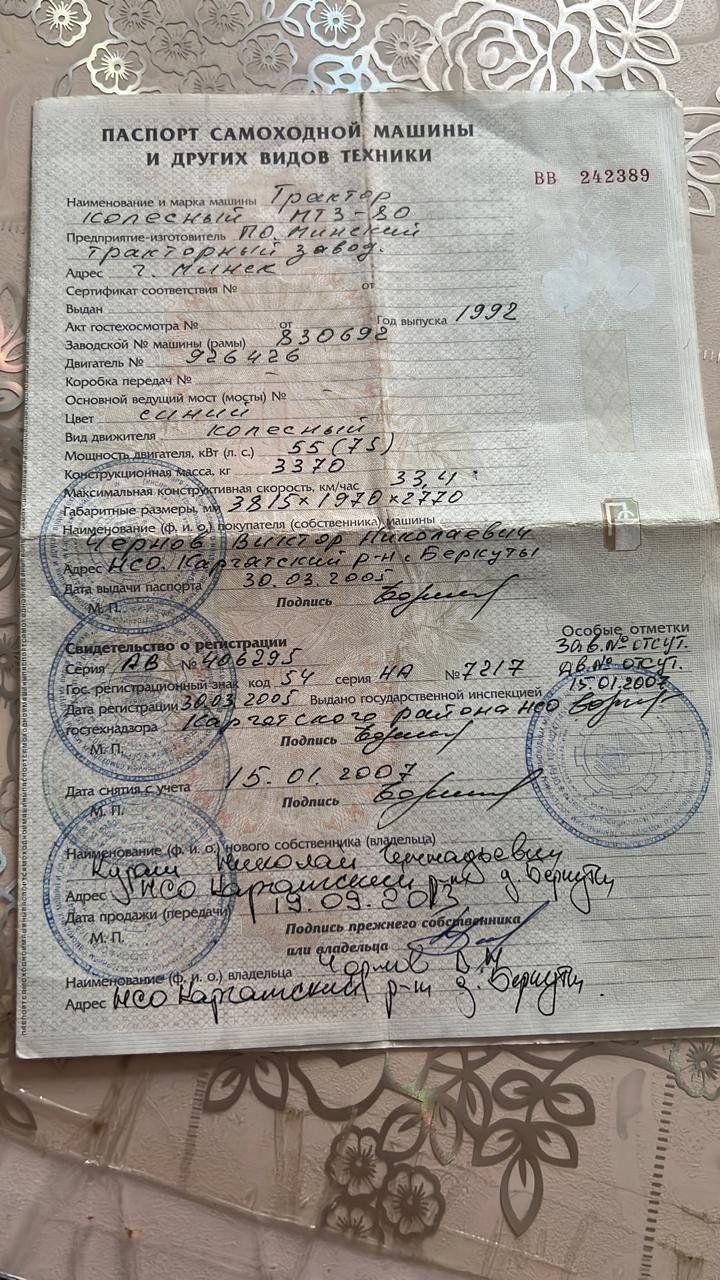 ПАСПОРТ САМОХОДНОЙ МАШИНЫ
И ДРУГИХ ВИДОВ ТЕХНИКИ
ВВ 242389
Наименование и марка машины Трактор
колесный МТЗ-80
Предприятие-изготовитель ПО Минский
тракторный завод.
Адрес г. Минск
Сертификат соответствия № от
Выдан
Акт гостехосмотра № от Год выпуска 1992
Заводской № машины (рамы) 830692
Двигатель № 926426
Коробка передач № –
Основной ведущий мост (мосты) № –
Цвет синий
Вид движителя колесный
Мощность двигателя, кВт (л. с.) 55 (75)
Конструкционная масса, кг 3370
Максимальная конструктивная скорость, км/час 33,4
Габаритные размеры, мм 3815×1970×2770
Наименование (ф. и. о.) покупателя (собственника) машины
Чернов Виктор Николаевич
Адрес НСО. Каргатский р-н с. Беркуты
Дата выдачи паспорта 30.03.2005
М. П. Подпись
Особые отметки
Зав.№ отсут.
Дв.№ отсут.
15.01.2007
Свидетельство о регистрации
Серия АВ № 406295
Гос. регистрационный знак код 54 серия НА № 7217
Дата регистрации 30.03.2005 Выдано государственной инспекцией
гостехнадзора Каргатского района НСО
М. П. Подпись
Дата снятия с учета 15.01.2007
М. П. Подпись
Наименование (ф. и. о.) нового собственника (владельца)
Николай Геннадьевич
Адрес НСО Каргатский р-н д. Беркуты
Дата продажи (передачи) 19.09.2013
М. П. Подпись прежнего собственника
или владельца
Наименование (ф. и. о.) владельца Чернов В.Н
Адрес НСО Каргатский р-н д. Беркуты.